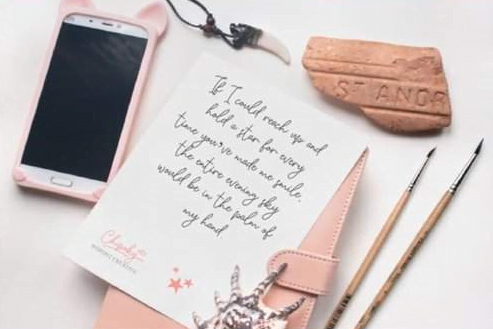 If I could reach up and
hold a star for every
time you've made me smile,
the entire evening sky
would be in the palm of
my hand
ST ANDR